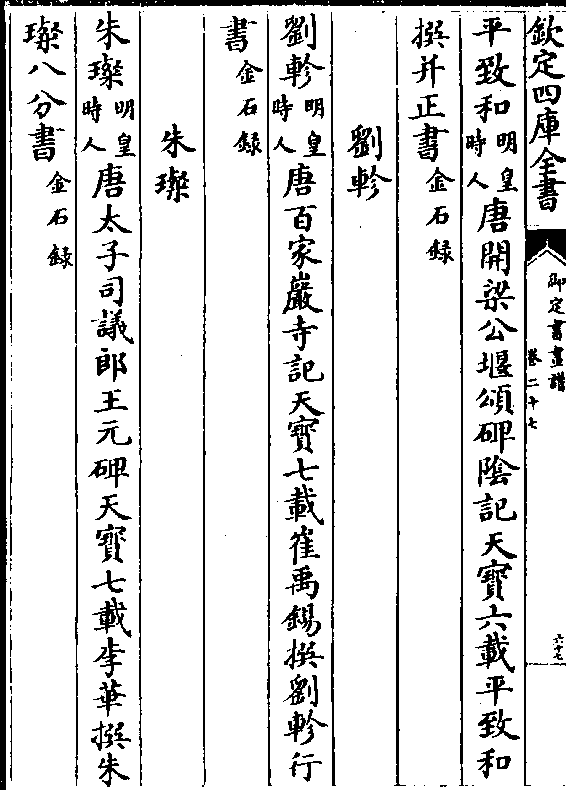 欽定四庫全書
御定書畫譜
卷二十七
六十七
平致和明皇時人唐開梁公堰頌碑陰記天寶六載平致和
撰并正書金石録
劉軫
劉軫明皇時人唐百家巖寺記天寶七載崔禹錫撰劉軫行
書金石録
朱璨
朱璨明皇時人唐太子司議郎王元碑天寶七載李華撰朱
璨八分書金石録